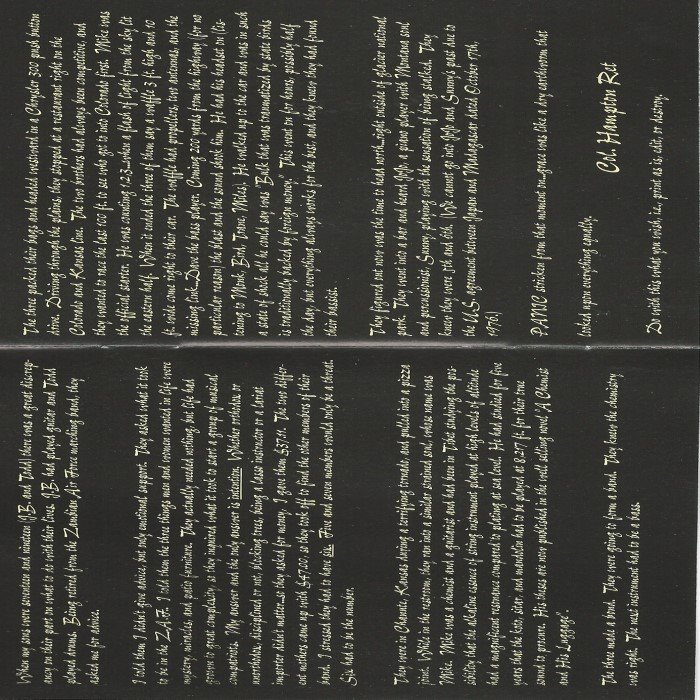 When my sons were seventeen and nineteen (J.B. and Todd) there was a great discrep-
ancy on their part on what to do with their lives. J.B. had played guitar and Todd
played drums. Being retired from the Zambian Air Force marching band, they
asked me for advice.
I told them I didn't give advice, but only emotional support. They asked what it took
to be in the Z.A.F. I told them the three things men and women wanted in life were
mystery, miracles, and patio furniture. They actually needed nothing but life had
grown in great complexity, so they inquired what it took to start a group of musical
compatriots. My answer and the only answer is intention. Whether orthodox or
inorthodox, disciplined or not, blocking trees, being a lasso instructor or a lariat
importer didn't matter...so they asked for money. I gave them $57.01. The two differ-
ent mothers came up with $47.00, so they took off to find the other members of their
band. I stressed they had to have six. Five and seven members would only be a threat.
Six had to be the number.
They were in Chanute, Kansas during a terrifying tornado and pulled into a pizza
joint. While in the restroom, they ran into a similar strained soul whose name was
Mike. Mike was a chemist and a guitarist and had been in Tibet studying the pos-
sibility that the alkaline essence of string instruments played at high levels of altitude
had a magnificent resonance compared to playing at sea level. He had studied for five
years that the koto, sitar, and mandolin had to be played at 8,217 ft. for their true
sound to procure. His theses are now published in the well selling novel, "A Chemist
and His Luggage".
The three make a band. They were going to form a band. They knew the chemistry
was right. The next instrument had to be a bass.
The three packed their bags and headed westward in a Chrysler 300 push button
drive. Driving through the plains, they stopped in a restaurant right on the
Colorado and Kansas line. The two brothers had always been competitive, and
they wanted to race the last 100 ft. to see who got in to Colorado first. Mike was
the official starter. He was counting 1-2-3...when a flash of light from the sky lit
the eastern half. When it ended the three of them saw a waffle 3 ft. high and 10
ft. wide come right to their car. The waffle had propellers, two antennas, and the
missing link...Dave the bass player. Coming 200 yards from the highway for no
particular reason, the blast and the sound shook him. He had his headset on (lis-
tening to Monk, Bird, Trane, Miles). He walked up to the car and was in such
a state of shock all he could say was "Baht that was traumatized by state birds
is traditionally backed by foreign money." This went on for hours, possibly half
the day, but everything always works for the best, and they knew they had found
their bassist.
They figured out now was the time to head north...right outside of glacier national
park. They went into a bar and heard Jojo a piano player with Montana soul
and percussionist, Sunny, playing with the sensation of being stalked. They
knew they were 5th and 6th. (We cannot go into JoJo and Sunny's past due to
the U.S. agreement between Japan and Madagascar dated October 17th,
1976)
PANIC stricken from that moment on...grace was like a dry earthworm that
looked upon everything equally.
Col. Hampton Ret
Do with this what you wish: i.e., print as is, edit, or destroy.